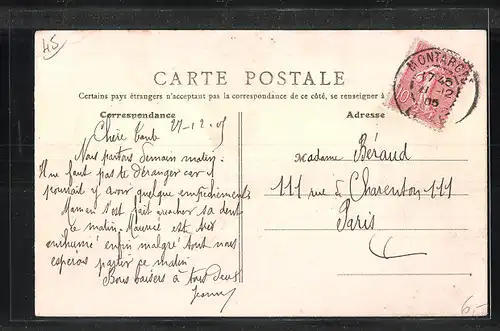 45
CARTE POSTALE
Certains pays étrangers n'acceptent pas la correspondance de ce côté, se renseigner à
Correspondance
Adresse
MONTARGIS
17 45
12
05
Chère tante 27-12.05
Nous partons demain matin.
Il ne faut pas te déranger car il
pourrait y avoir quelque empêchements
Maman s'est fait arracher sa dent
ce matin. Maurice est très
enrhumé enfin malgré tout nous
esperons partir ce matin
Bons baisers à tous deux
Jeanne
Madame Béraud
111 rue de Charenton 111
Paris
6,-